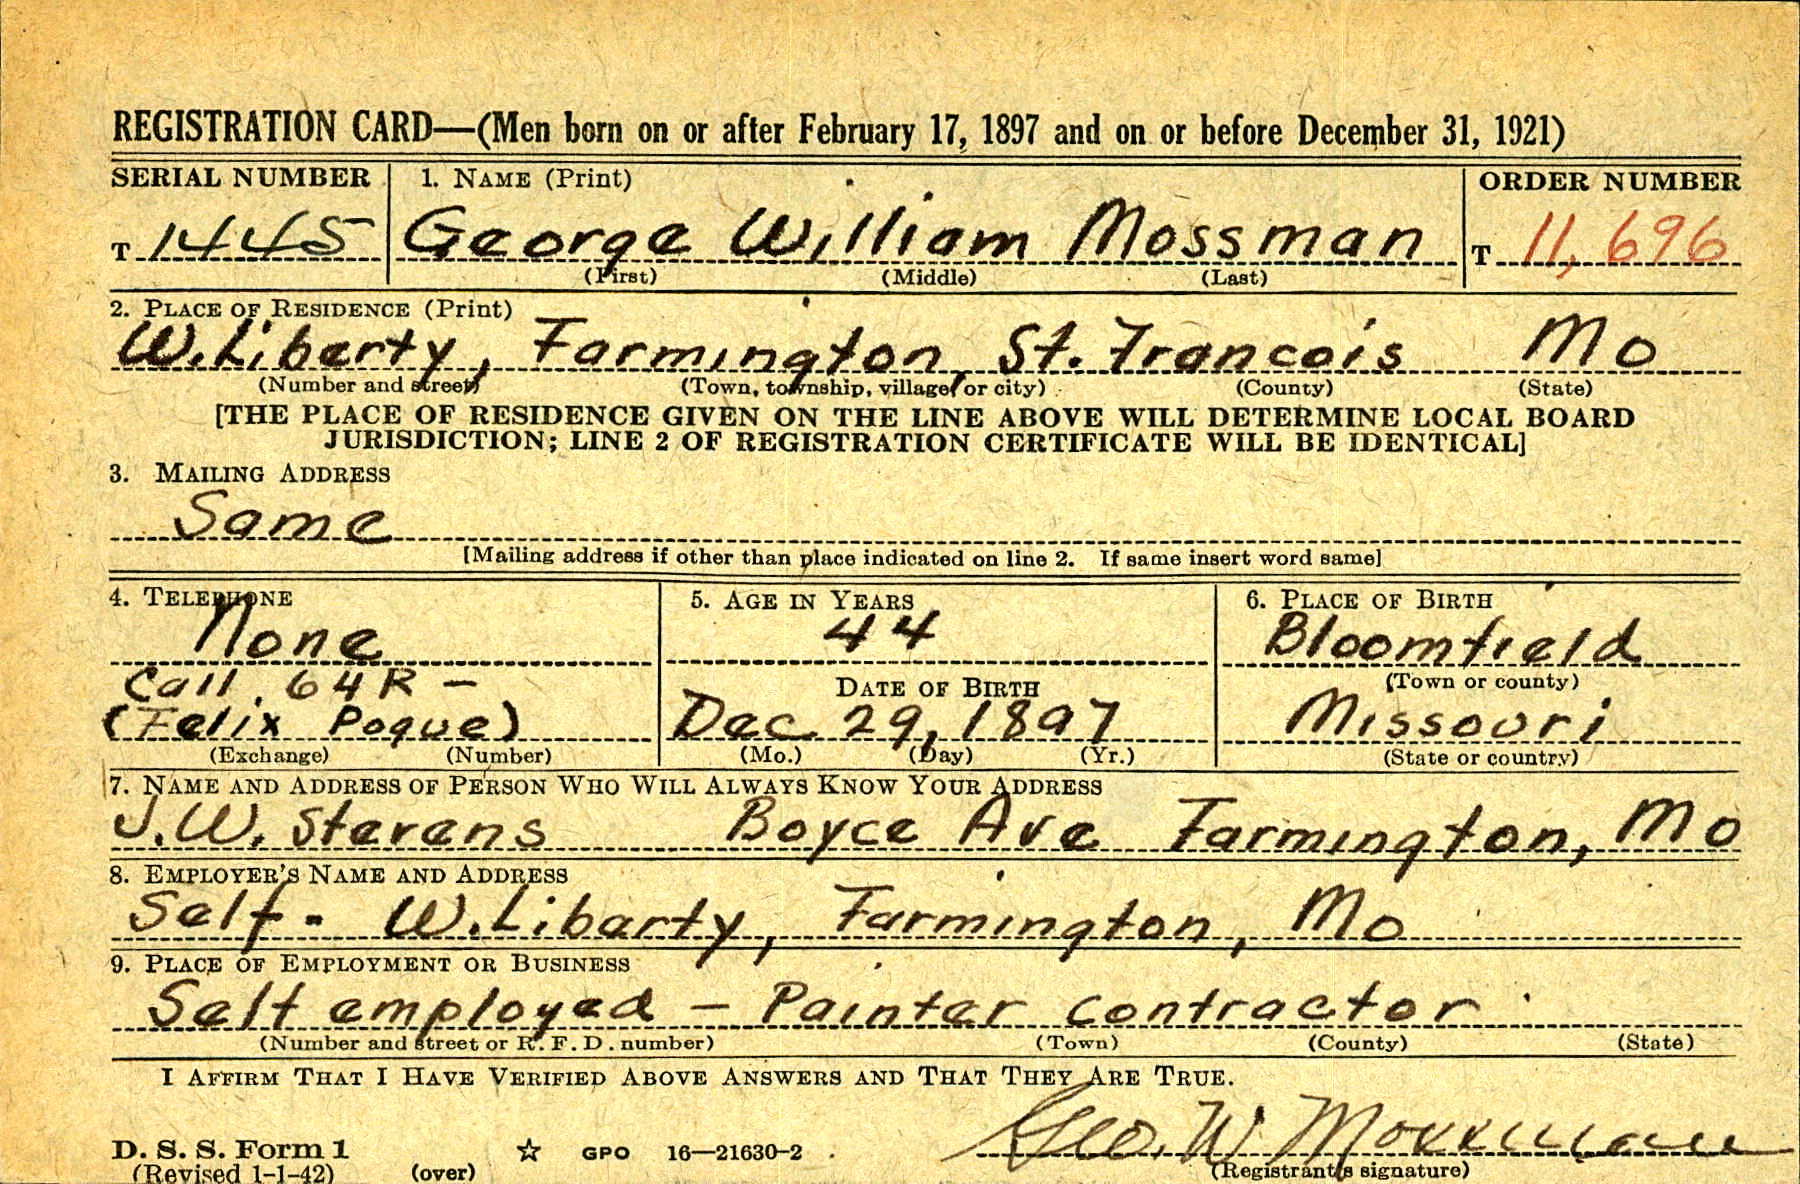 REGISTRATION CARD—(Men born on or after February 17, 1897 and on or before December 31, 1921)
SERIAL NUMBER 1. NAME (Print) ORDER NUMBER
T 1445 George William Mossman T 11,696
(First) (Middle) (Last)
2. PLACE OF RESIDENCE (Print)
W. Liberty, Farmington, St. Francois Mo
(Number and street) (Town, township, village, or city) (County) (State)
[THE PLACE OF RESIDENCE GIVEN ON THE LINE ABOVE WILL DETERMINE LOCAL BOARD
JURISDICTION; LINE 2 OF REGISTRATION CERTIFICATE WILL BE IDENTICAL]
3. MAILING ADDRESS
Same
[Mailing address if other than place indicated on line 2. If same insert word same]
4. TELEPHONE 5. AGE IN YEARS 6. PLACE OF BIRTH
None 44 Bloomfield
Call 64R – DATE OF BIRTH (Town or county)
(Felix Pogue) Dec 29, 1897 Missouri
(Exchange) (Number) (Mo.) (Day) (Yr.) (State or country)
7. NAME AND ADDRESS OF PERSON WHO WILL ALWAYS KNOW YOUR ADDRESS
J.W. Stevens Boyce Ave Farmington, Mo
8. EMPLOYER'S NAME AND ADDRESS
Self - W. Liberty, Farmington, Mo
9. PLACE OF EMPLOYMENT OR BUSINESS
Self employed – Painter contractor
(Number and street or R. F. D. number) (Town) (County) (State)
I AFFIRM THAT I HAVE VERIFIED ABOVE ANSWERS AND THAT THEY ARE TRUE.
Geo. W Mossman
D. S. S. Form 1 ☆ GPO 16—21630-2
(Revised 1-1-42) (over) (Registrant's signature)